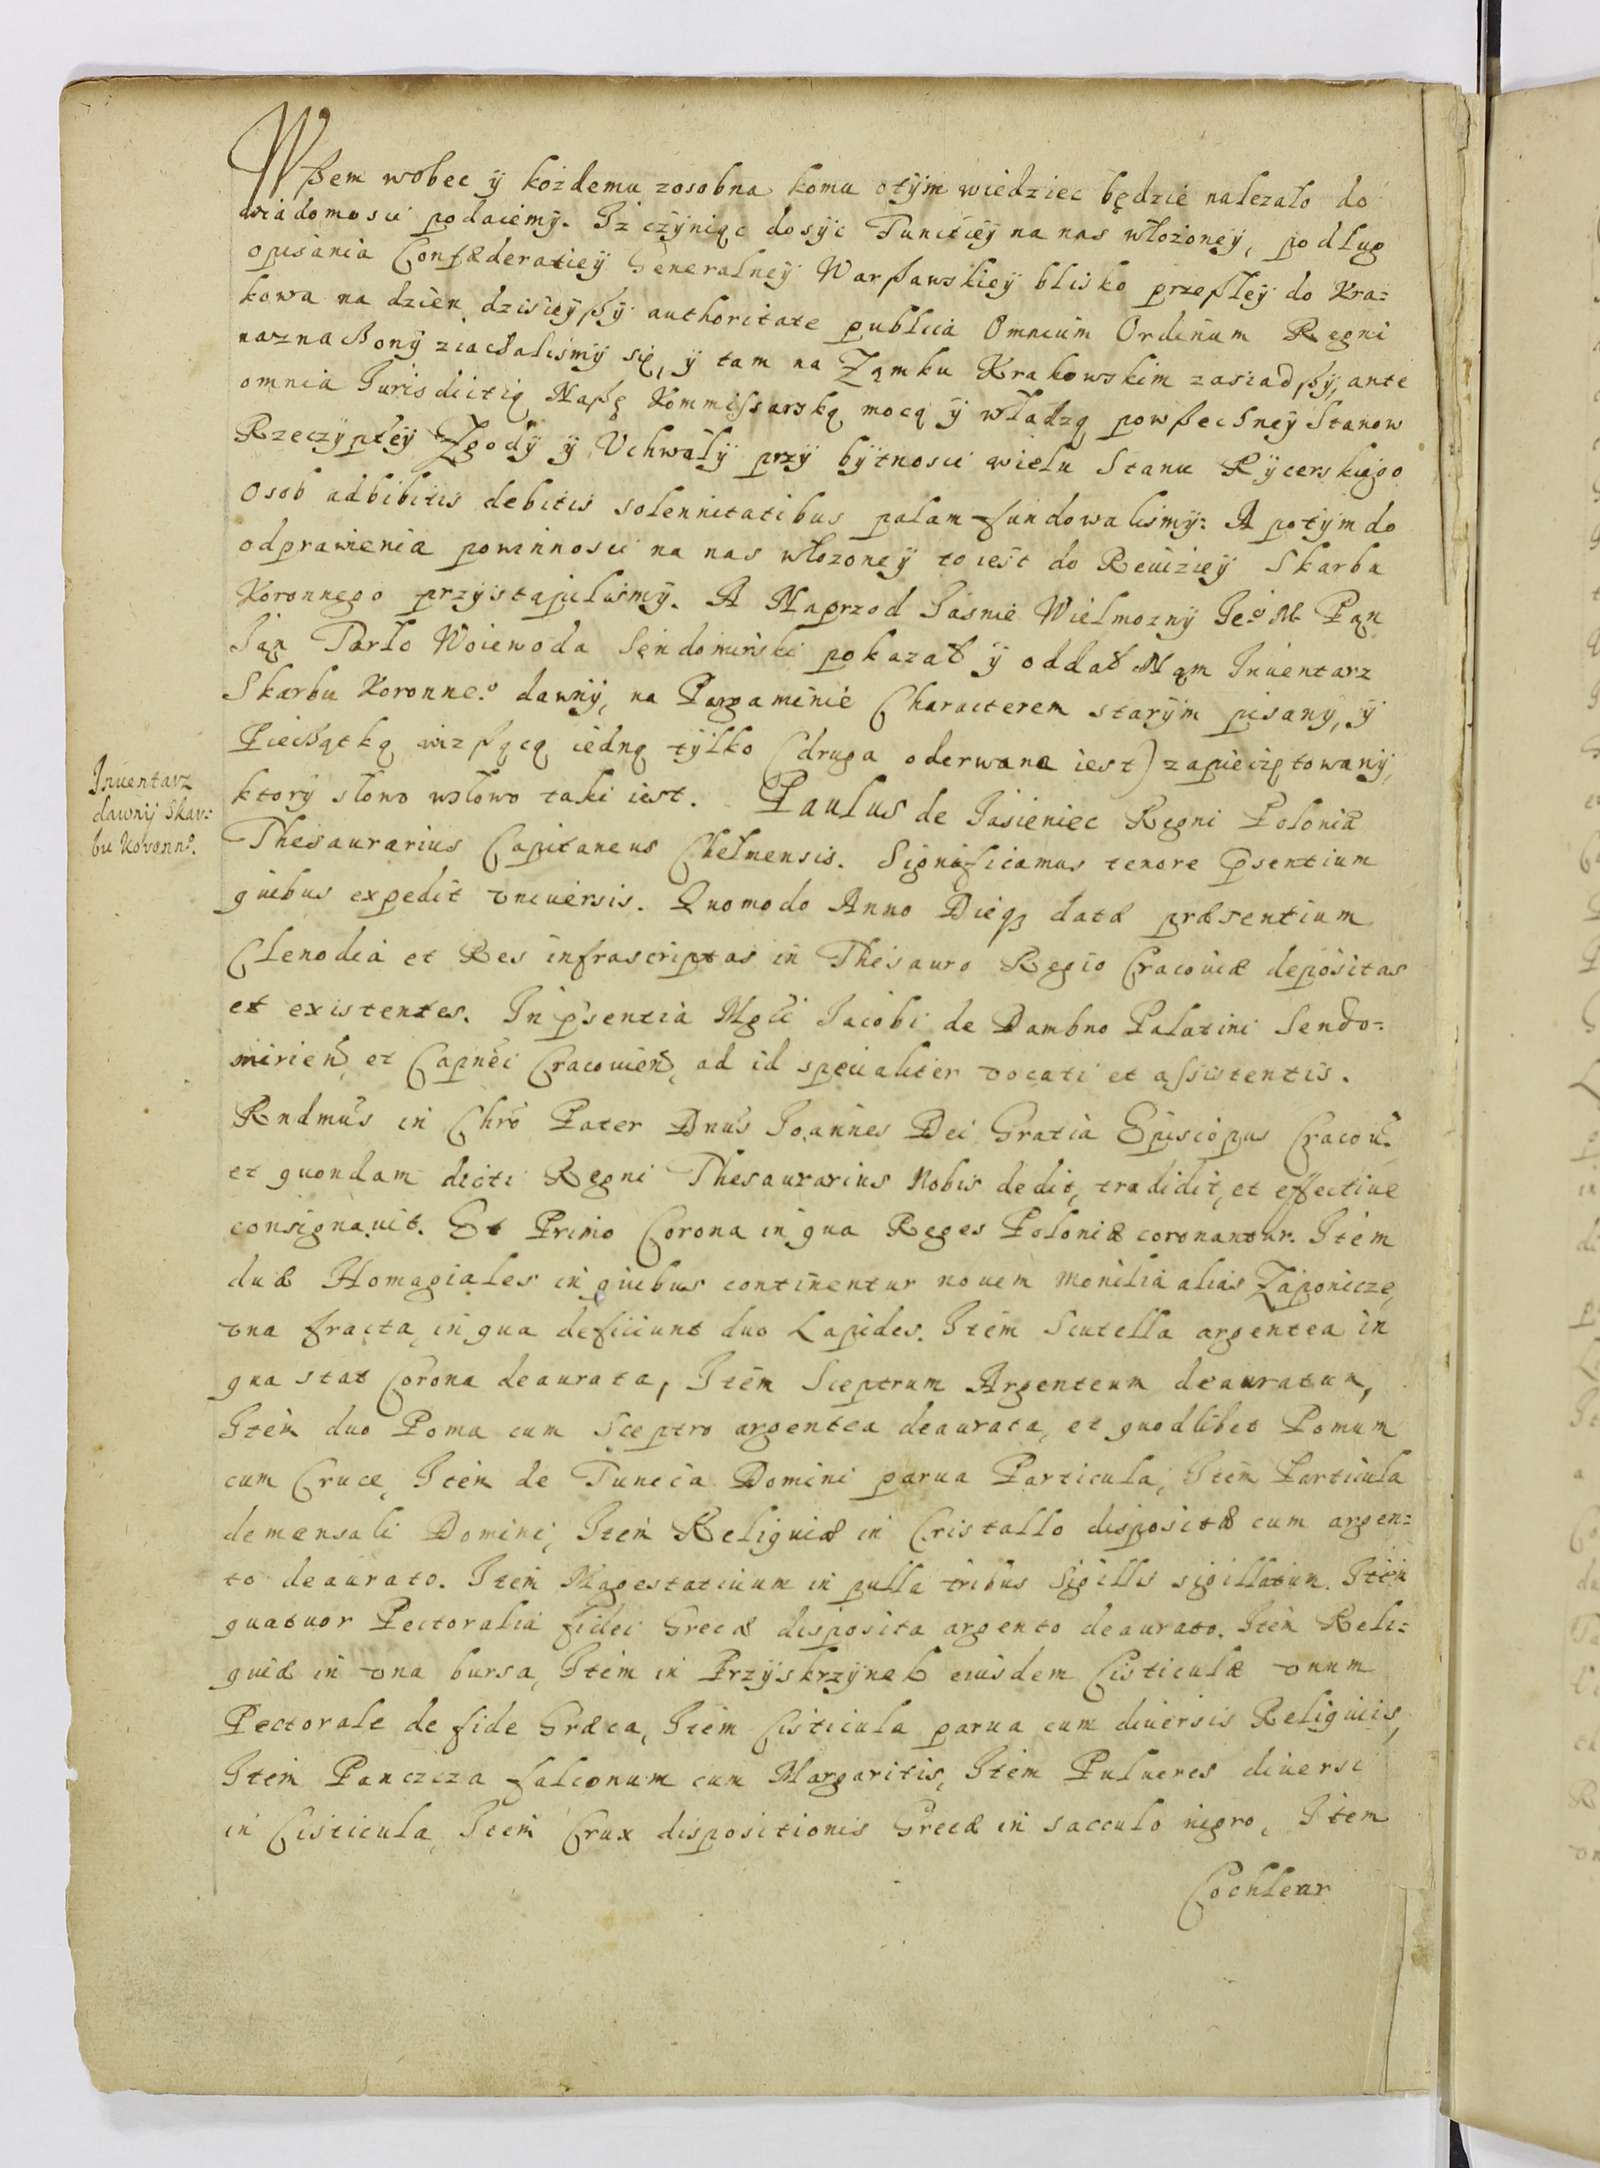 Wßem wobec ÿ kożdemu zosobna komu otÿm wiedziec będzie nalezało do
wiadomosci podaiemÿ. Iż czÿniąc dosÿc Funkcieÿ na nas włożoneÿ, podług
opisania Confæderatieÿ Generalneÿ Warßawskieÿ blisko przeßłeÿ do Kra=
kowa na dzien dzisieÿßÿ authoritate publica Omnium Ordinum Regni
naznaczonÿ ziachalismÿ się, ÿ tam na Zamku Krakowskim zasiadßÿ, ante
omnia Jurisdictią Naßę Kommissarską mocą ÿ władzą powßechneÿ Stanow
Rzeczÿpteÿ Zgodÿ ÿ Uchwałÿ przÿ bÿtnosci wielu Stanu Rÿcerskiego
Osob adhibitis debitis solennitatibus palam fundowalismÿ: A potÿm do
odprawienia powinnosci na nas włozoneÿ to iest do Reuizieÿ Skarbu
Koronnego przÿstąpilismÿ. A Naprzod Jasnie Wielmoznÿ Jeo M Pan
Jan Tarło Woiewoda Sendomirski pokazał ÿ oddał Nam Inuentarz
Skarbu Koronneo dawnÿ, na Pargaminie Characterem starÿm pisanÿ, ÿ
Pieczątką wiszącą iedną tÿlko (druga oderwana iest) zapieczętowanÿ,
ktorÿ słowo wsłowo taki iest. Paulus de Jasieniec Regni Poloniæ
Inuentarz
dawnÿ Skar:
bu Koronno.
Thesaurarius Capitaneus Chelmensis. Significamus tenore psentium
quibus expedit vniuersis. Quomodo Anno Dieqz datæ præsentium
Clenodia et Res infrascriptas in Thesauro Regio Cracouiæ depositas
et existentes. In psentia Mgci Jacobi de Dambno Palatini Sendo=
mirien, et Capnei Cracouien, ad id specialiter vocati et assistentis.
Rndmus in Chro Pater Dnus Joannes Dei Gratia Episcopus Cracou:
et quondam dicti Regni Thesaurarius Nobis dedit, tradidit, et effectiue
consignauit. Et Primo Corona in qua Reges Poloniæ coronantur. Item
duæ Homagiales in quibus continentur nouem monilia alias Zaponicze,
vna fracta, in qua deficiunt duo Lapides. Item Scutella argentea in
qua stat Corona deaurata, Item Sceptrum Argenteum deauratum,
Item duo Poma cum Sceptro argentea deaurata, et quodlibet Pomum
cum Cruce, Item de Tunica Domini parua Particula, Item Particula
de mensali Domini, Item Reliquiæ in Cristallo dispositæ cum argen=
to deaurato. Item Magestaticum in pulla tribus Sigillis sigillatum. Item
quatuor Pectoralia fidei Grecæ disposita argento deaurato. Item Reli=
quiæ in vna bursa, Item in Przÿskrzÿnek eiusdem Cisticulæ vnum
Pectorale de fide Græca, Item Cisticula parua cum diuersis Reliquiis,
Item Panczcza falconum cum Margaritis, Item Pulueres diuersi
in Cisticula, Item Crux dispositionis Grecæ in sacculo nigro, Item
Cochlear